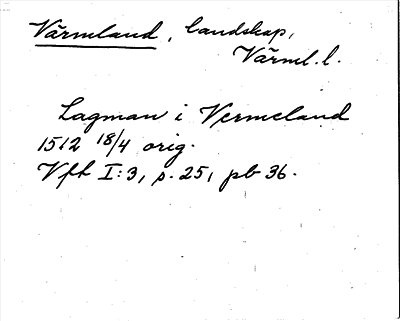 Värmland, landskap,
Värml. l.
Lagman i Vermeland
1512 18/4 orig.
Vfh I:3, s. 25, pb 36.